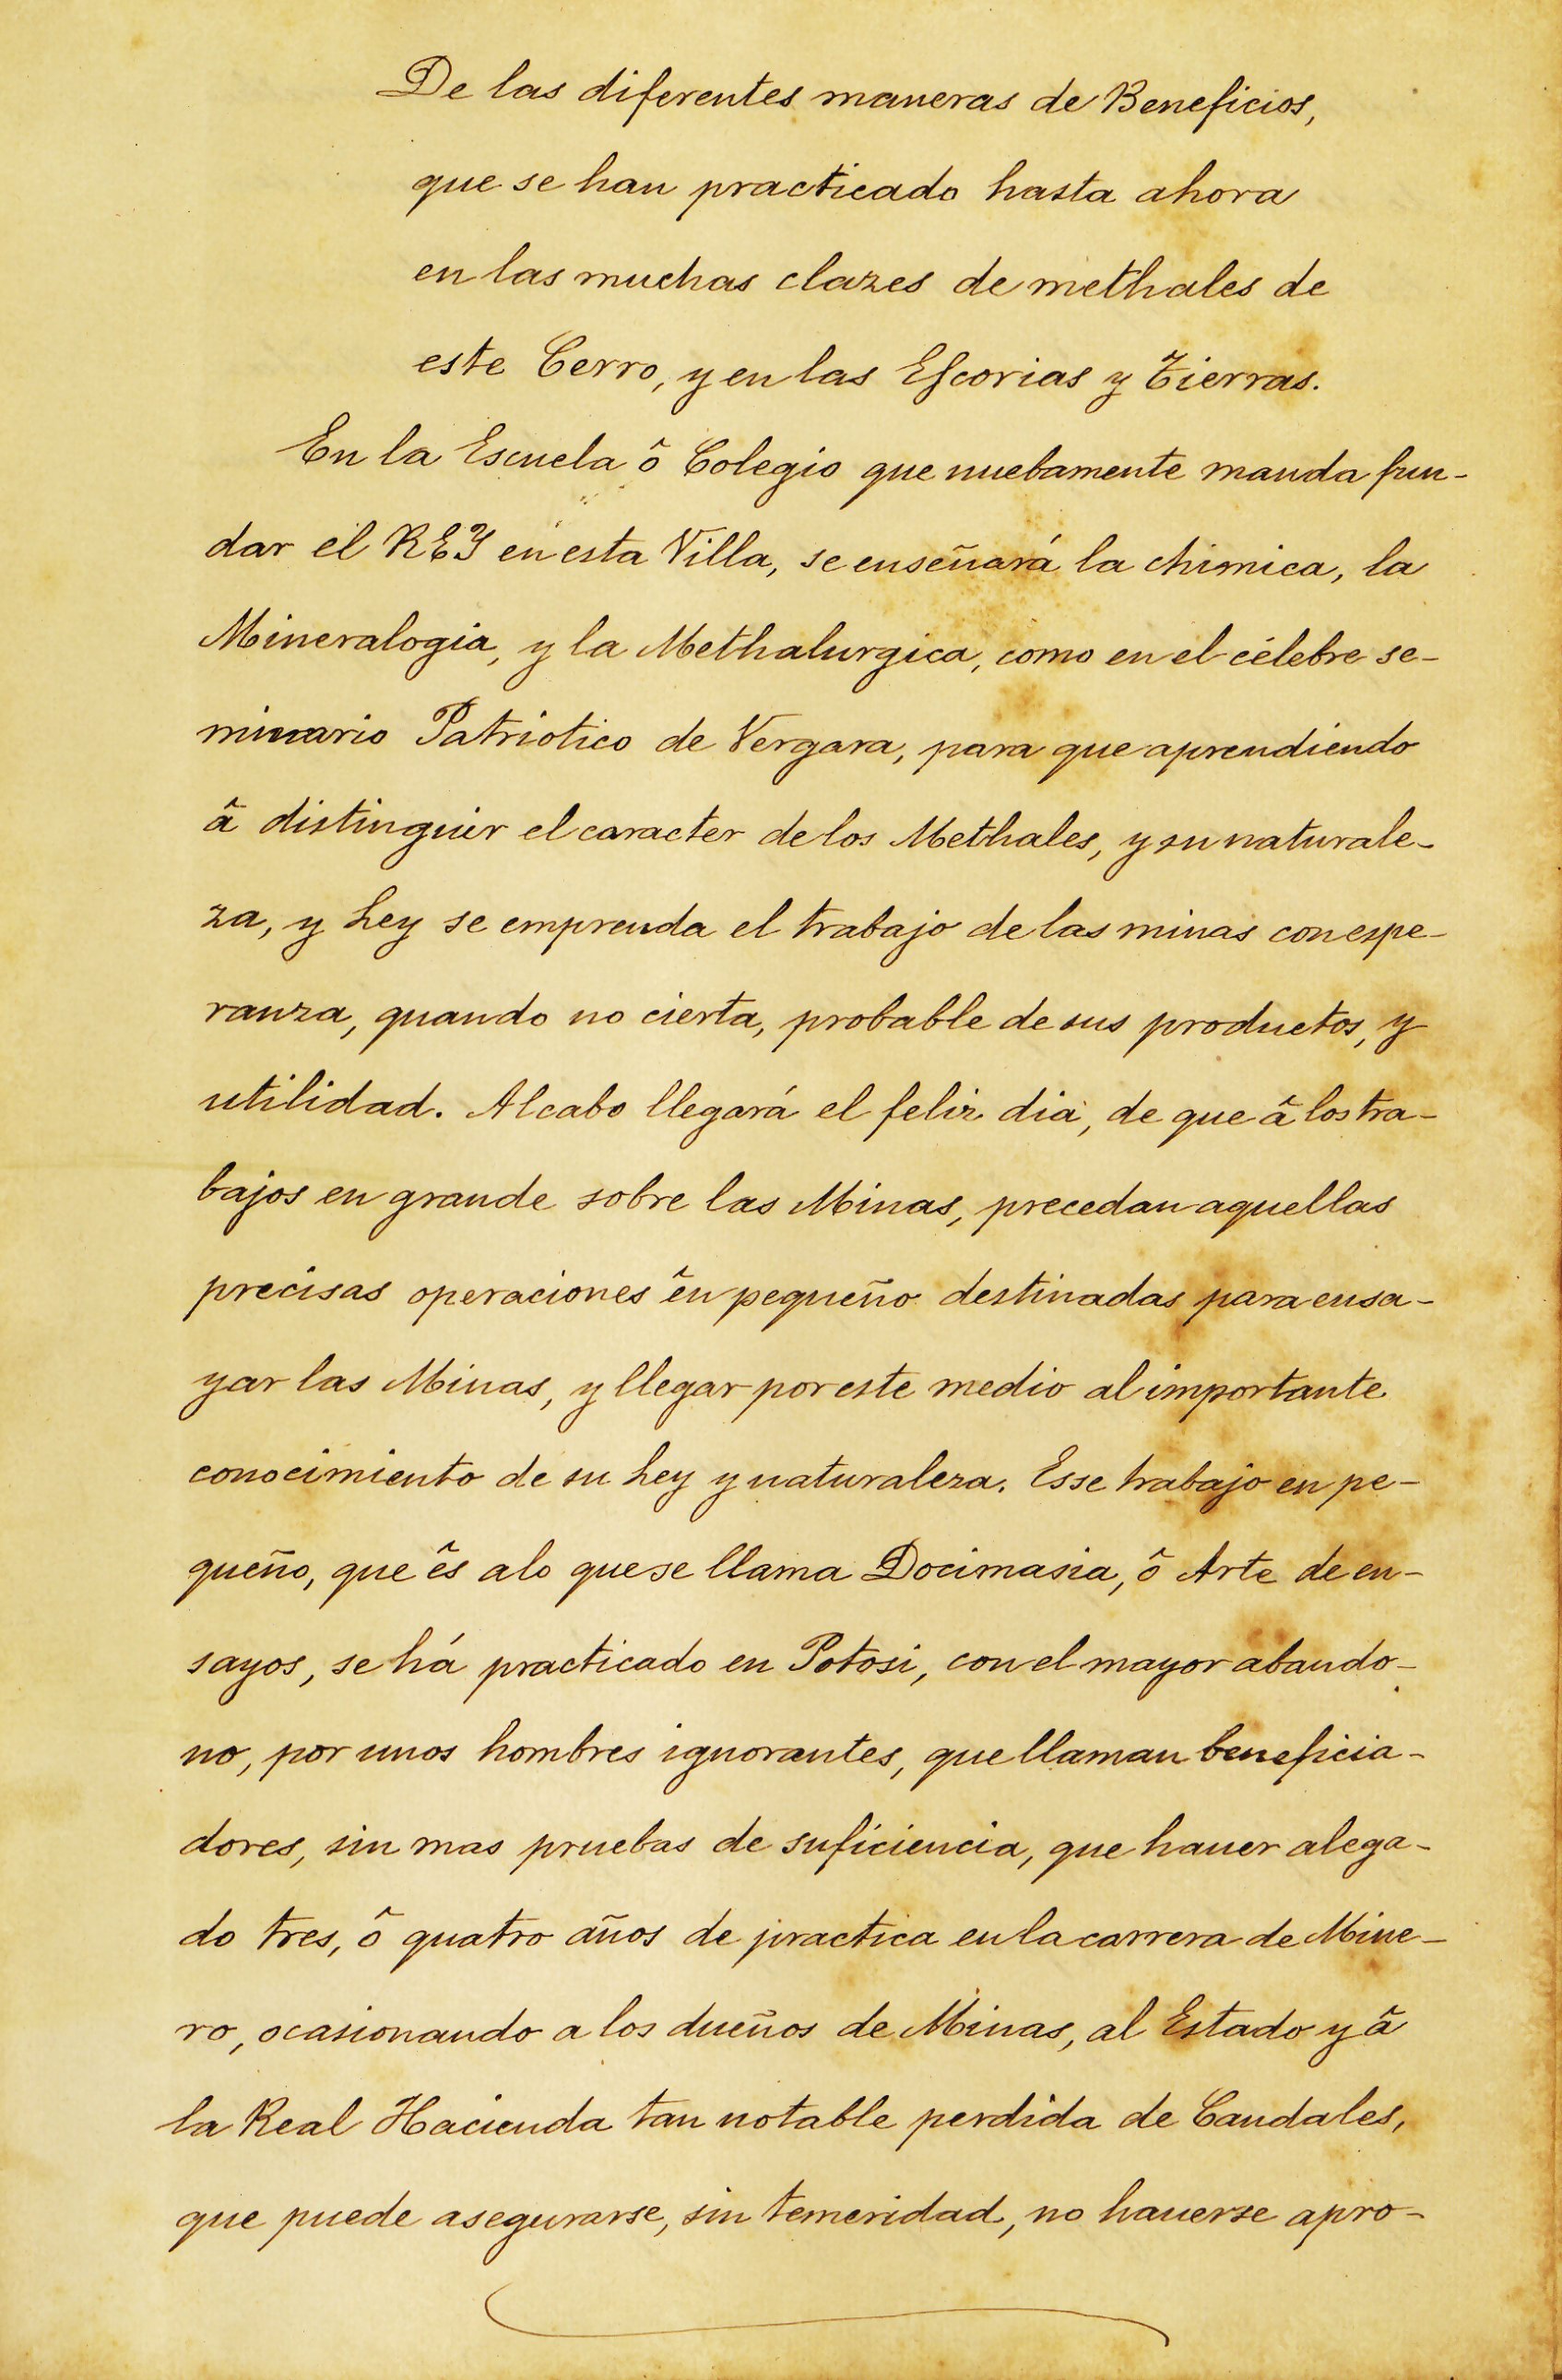 De las diferentes maneras de Beneficios,
que se han practicado hasta ahora
en las muchas clazes de methales de
este Cerro, y en las Escorias y Tierras.
En la Escuela ô Colegio que nuebamente manda fun-
dar el REY en esta Villa, se enseñará la chimica, la
Mineralogia, y la Methalurgica, como en el célebre se-
minario Patriotico de Vergara, para que aprendiendo
â distinguir el caracter de los Methales, y su naturale-
za, y Ley se emprenda el trabajo de las minas con espe-
ranza, quando no cierta, probable de sus productos, y
utilidad. Al cabo llegará el feliz dia, de que â los tra-
bajos en grande sobre las Minas, precedan aquellas
precisas operaciones ên pequeño destinadas para ensa-
yar las Minas, y llegar por este medio al importante
conocimiento de su Ley y naturaleza. Esse trabajo en pe-
queño, que ês a lo que se llama Docimasia, ô Arte de en-
sayos, se há practicado en Potosi, con el mayor abando-
no, por unos hombres ignorantes, que llaman beneficia-
dores, sin mas pruebas de suficiencia, que hauer alega-
do tres, ô quatro años de practica en la carrera de Mine-
ro, ocasionando a los dueños de Minas, al Estado y â
la Real Hacienda tan notable perdida de Caudales,
que puede asegurarse, sin temeridad, no hauerse apro-